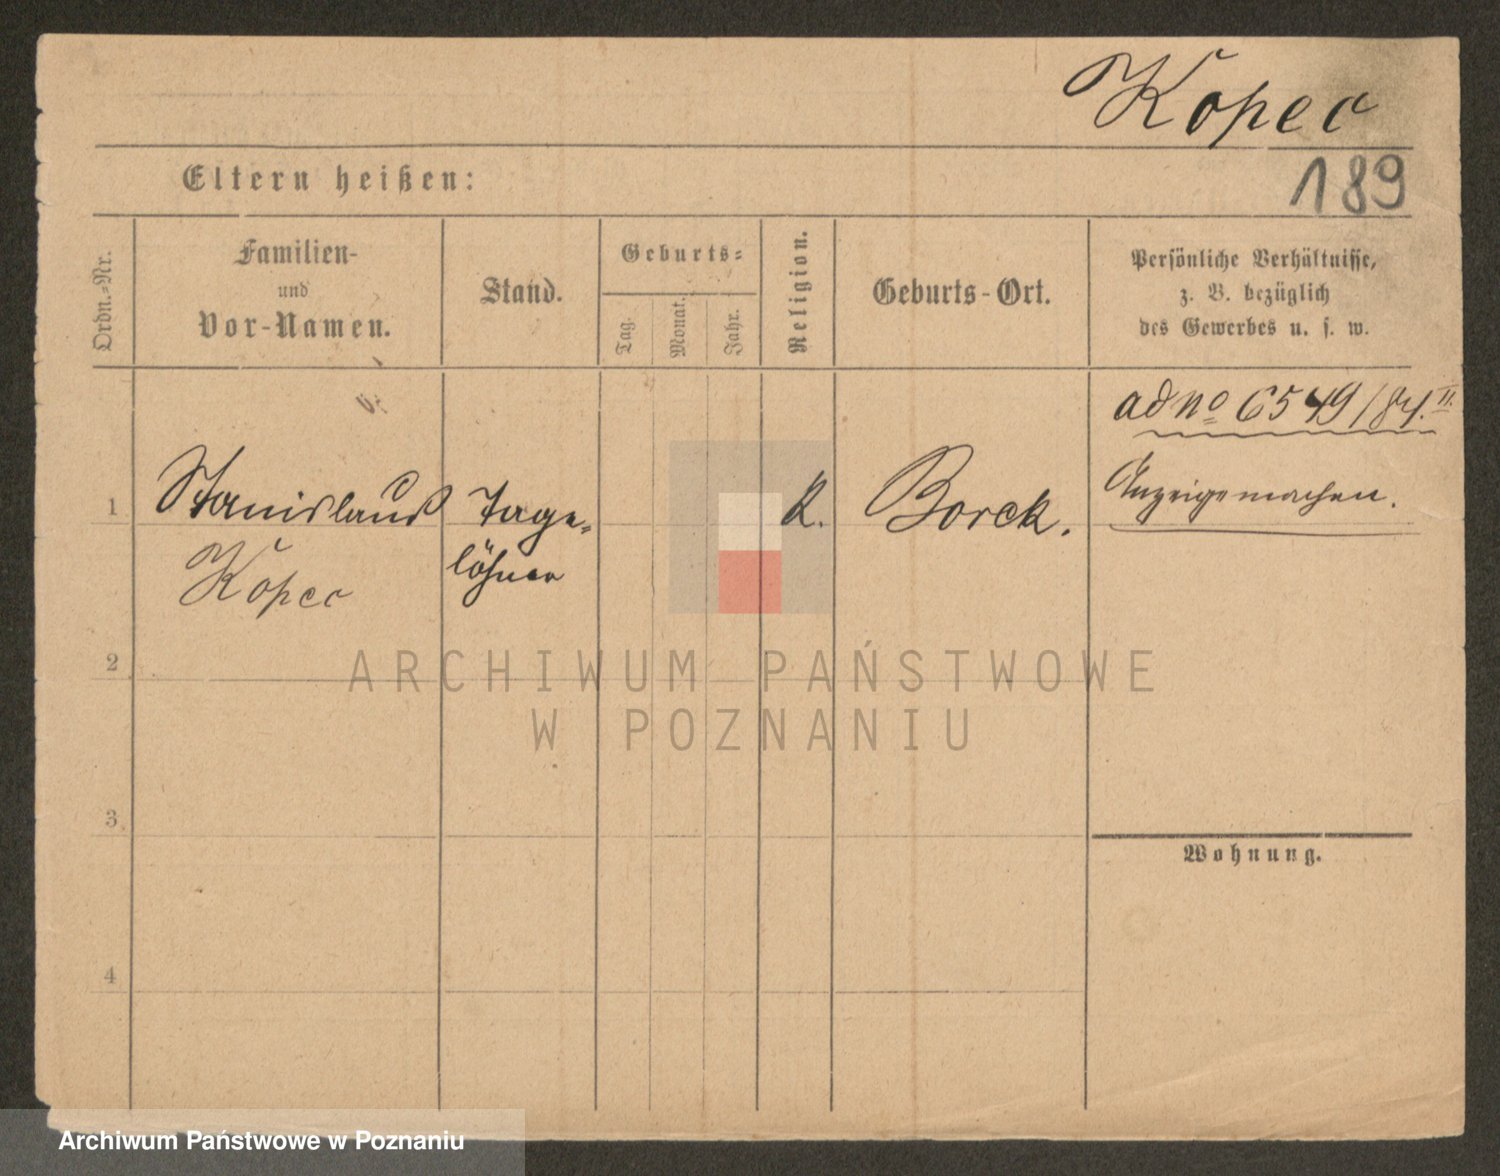 Kopec
189
Eltern heißen:
Ordn.-Nr.
Familien-
und
Vor-Namen.
Stand.
Geburts-
Tag.
Monat.
Jahr.
Religion.
Geburts-Ort.
Persönliche Verhältnisse,
z. B. bezüglich
des Gewerbes u. s. w.
ad no 6549/84.II.
1
Stanislaus
Kopec
Tage-
löhner
K.
Borek.
Anzeige machen.
2
3
4
Wohnung.
ARCHIWUM PAŃSTWOWE
W POZNANIU
Archiwum Państwowe w Poznaniu